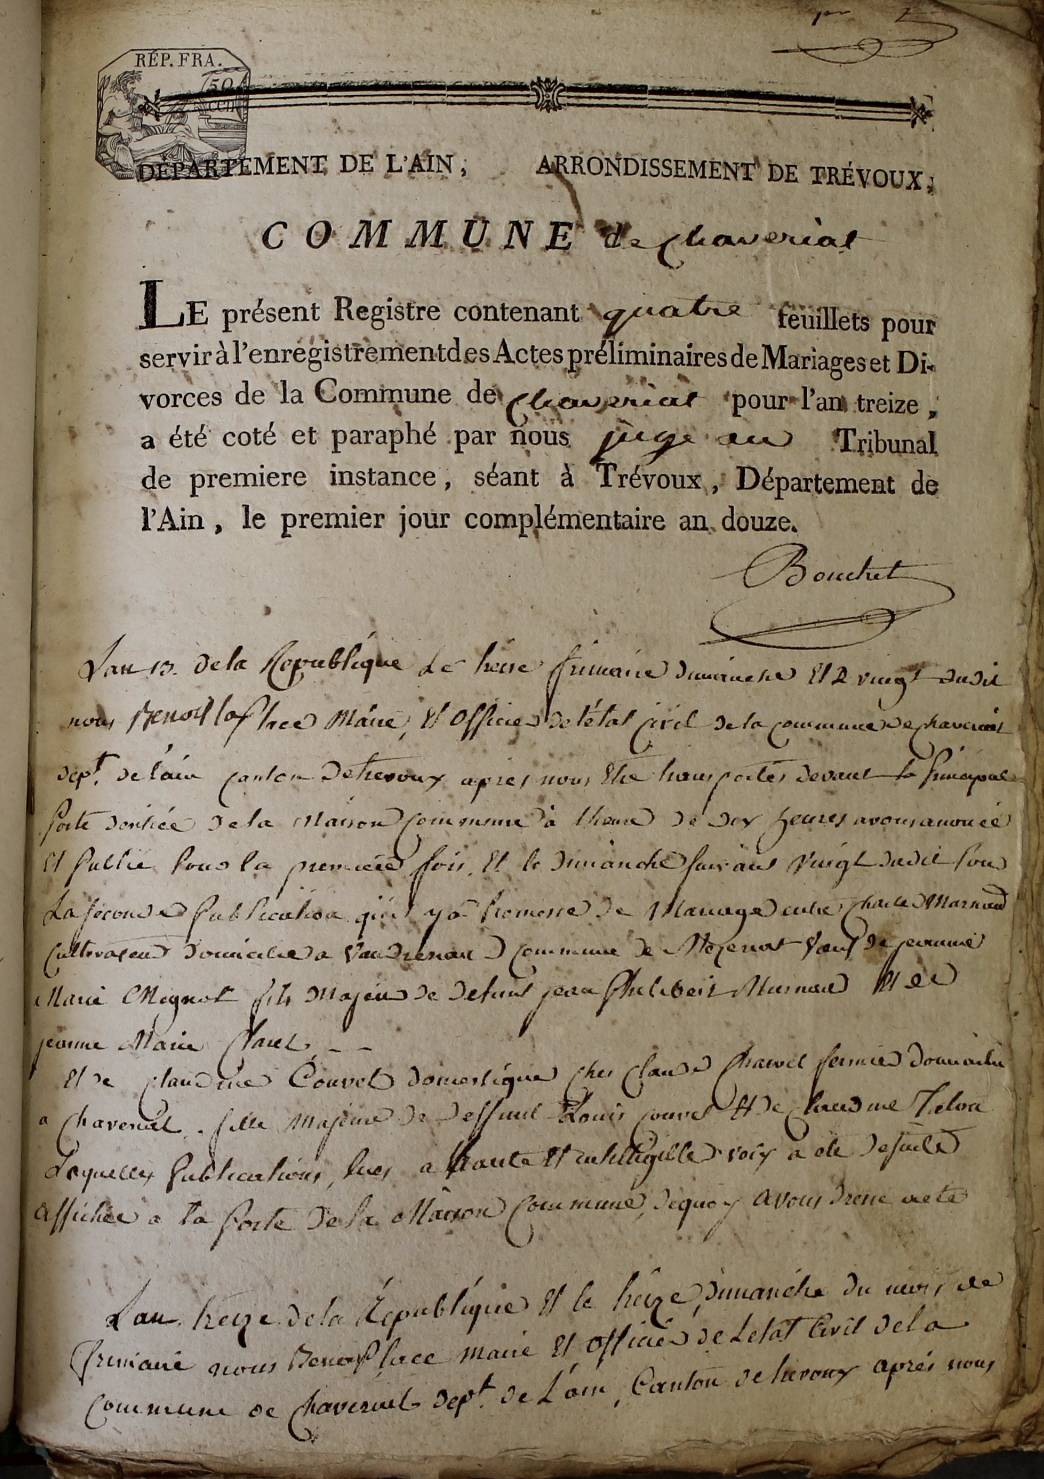 RÉP. FRA.
50
DÉPARTEMENT DE L'AIN, ARRONDISSEMENT DE TRÉVOUX,
COMMUNE de chaveriat
LE présent Registre contenant quatre feuillets pour
servir à l'enregistrement des Actes préliminaires de Mariages et Di-
vorces de la Commune de chaveriat pour l'an treize,
a été coté et paraphé par nous juge au Tribunal
de premiere instance, séant à Trévoux, Département de
l'Ain, le premier jour complémentaire an douze.
Bouchet
Lan 13. de la Republique Le treize frimaire dimanche Et vingt dudit
nous Benoit Maire, Et Officier de l'état Civil de la commune de chaveriat
dept. de l'ain canton de trevoux apres nous Etre transportés devant la principale
porte d'entrée de la Maison Commune à lheure de dix heures avons anoncé
Et Publié pour la premiere fois, Et le dimanche suivant vingt dudit pour
La seconde Publication, qu'il y a promesse de Mariage entre
cultivateur domicilié a commune de veuf de jeanne
Marie Mignot fils Majeur de defunt jean Philibert Et de
jeanne Marie
Et de Claudine Couvet domestique ches Claude fermier domicilié
a Chaveriat. fille Majeure de deffunt Louis couvet Et de Claudine
Lesquelles Publications, lues a haute Et intelligible voix a été de suite
affichée a la porte de la Maison Commune, dequoy avons dressé acte
Lan treize de la République Et le treize, dimanche du mois de
frimaire nous Benoit place maire Et Officier de Letat Civil de la
commune de Chaveriat dept. de L'ain, Canton de trevoux après nous